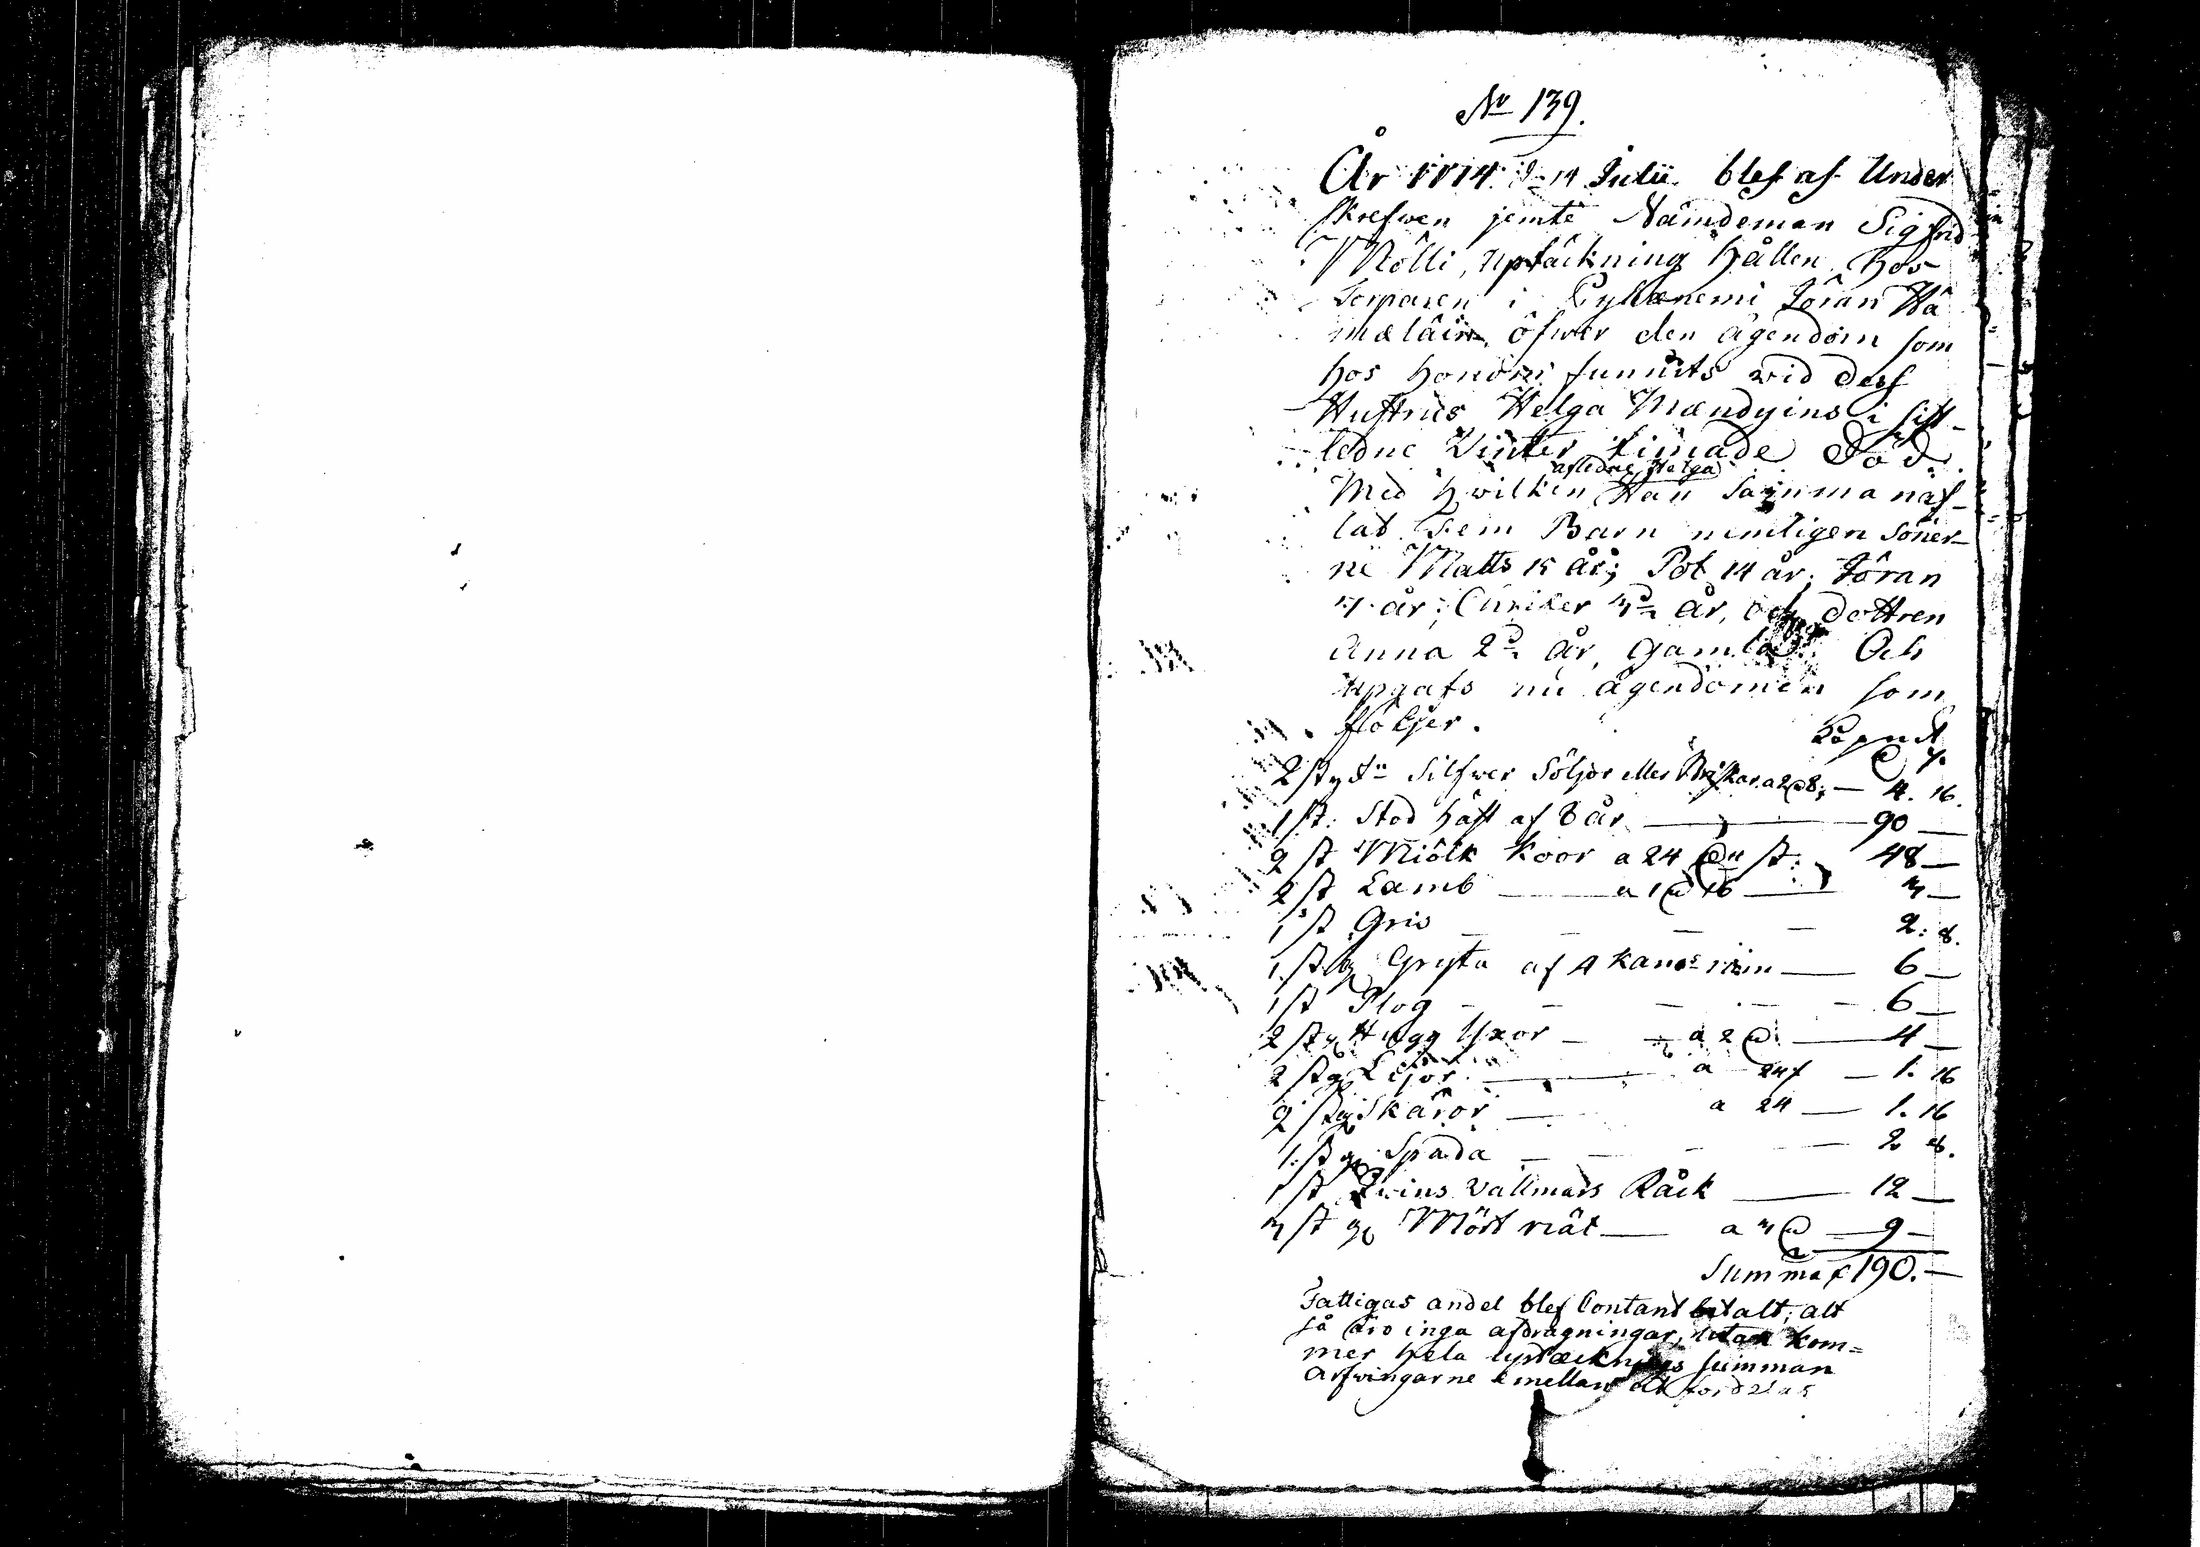 No 139.
År 1814 d. 14 Julii. blef af Under
skrefwen jemte Nämdeman Sigfrid
Mölli, uptäckning hållen hos
Torparen i Pyhänemi Jöran Hä
mäläin, öfwer den ägendom som
hos honom funnits wid dess
Hustrus Helga Mændyins i sist
ledne Winter timade Död.
afledne Helga
Med hwilken Han samma näf
lat Fem Barn nemligen Söner-
ne Matts 15 år; Pol 14 år; Jöran
7 år; Chriker år, och dottren
Anna 2 år, gamla. Och
upgafs nu ägendomen som
följer.
2 sty Silfwer Söljor eller a 2 8; — 4. 16.
1 st: Stod häst af 8 år — 90 —
2 st Miölk Koor a 24 st: 48 —
2 st Lamb — a 1 16 — 3 —
1 st Gris — — — — 2. 8.
1 st g Gryta af 4 kanors rum — 6 —
1 st Plog — — — — 6 —
2 st g Hugg Yxor — a 2 — 4 —
2 st g Lijor — a 24 f — 1. 16
2 st g Skäror — a 24 — 1. 16
1 st g Spada — — — — 2 8.
1 st vallmars Råck — 12 —
3 st g Mört nät — a 3 — 9 —
Summa 190. —
Fattigas andel blef Contant betalt, alt
så äro inga afdragningar, utan kom=
mer hela uptäcknings summan
arfwingarne emellan att fördelas